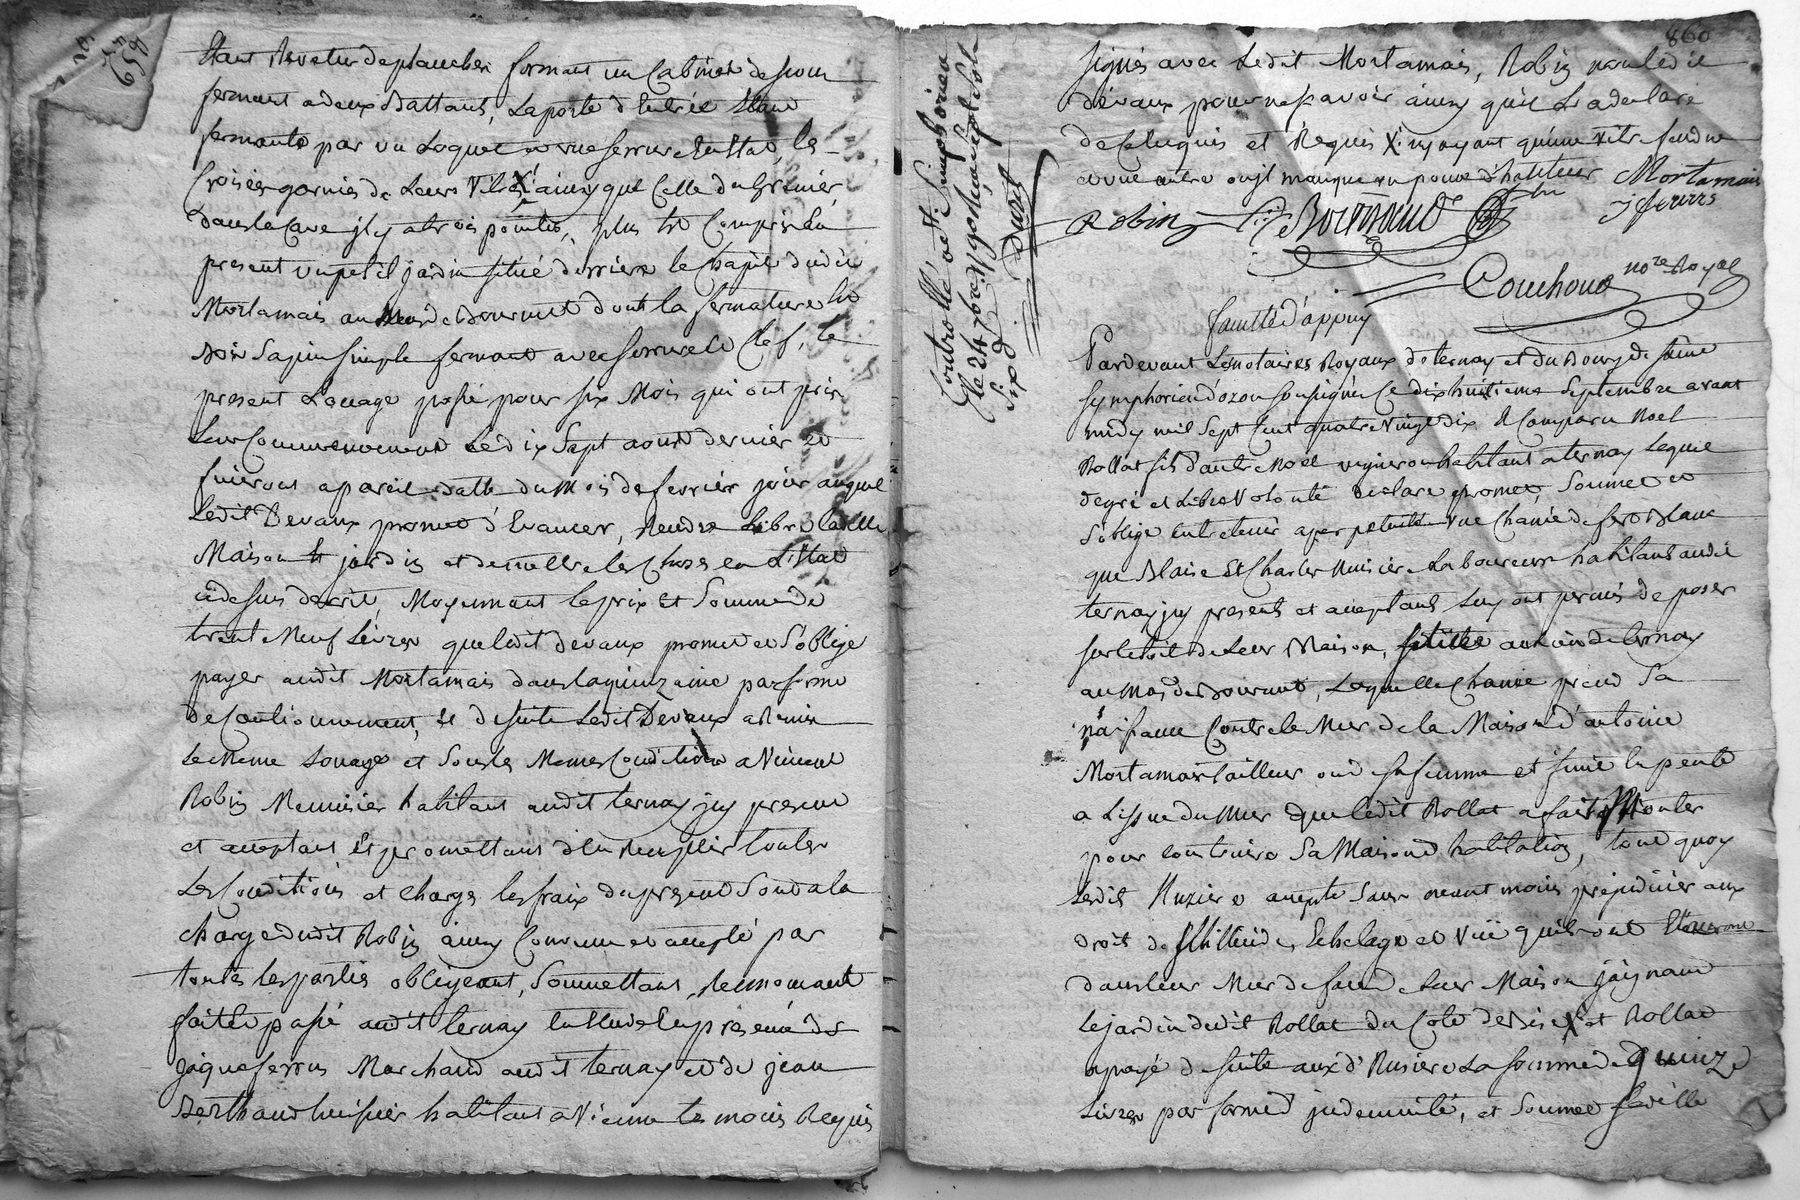 859
Etant Revetue de plancher formant un Cabinet de
fermant a deux Battants, La porte d'Entrée Etant
fermante par un Loquet et une serrure En Etat, les
Croisées garnies de Leurs Vitre X ainsy que Celle du Grenier
dans la Cave il y a trois pointes, plus Est Compris En
present un petit jardin situé derriere le Chapit dudit
Mortamais au Mas de Bournut dont la fermature Est
Bois Sapin simple fermant avec serrure et Clef, le
present Louage passé pour six Mois qui ont pris
Leur Commencement Le dix Sept aout dernier et
finiront a pareil datte du Mois de fevrier jour auquel
Ledit Devaux promet d'Evancer, Rendre Libre Laditte
Maison Et jardin et de mettre les Choses en L'Etat
cy dessus decrit, Moyennant le prix Et Somme de
trent Neuf Livres que Ledit devaux promet et S'oblige
payer audit Mortamais dans la quinzaine par forme
de Cautionnement, Et de suite Ledit Devaux a Remis
Le Meme Louage et Sous les Memes Condition a Vincent
Robin Menuisier habitant audit ternay jcy present
et acceptant Et promettant d'En Remplir toutes
Les Conditions et Charges les fraix du present Sont a la
charge dudit Robin ainsy Convenu et accepté par
toutes les parties obligeant, Soumettant, Renonceant
fait et passé audit ternay En Etude En presence de
jaques ferrus Marchand audit ternay et de jean
Berthaud huissier habitant a Vienne temoins Requis
860
signés avec Ledit Mortamais, Robin non ledit
devaux pour ne scavoir ainsy qu'il L'a declaré
de Ce Enquis et Requis X n'y ayant qu'une vitre fendue
et une autre ou il manque un pouce d'hauteur Mortamais
Robin Bournaud jferrus
Couchoud nore Royal
Controllé a St Simphorien
le 24 7bre 1790
Six d
faculté d'appuy
Pardevant Les notaires Royaux de ternay et du Bourg de saint
symphorien d'ozon soussignés Ce dix huitieme Septembre avant
midy mil Sept Cent quatre vingt dix A Comparu Noel
Rollat fils d'autre Noel vigneron habitant a ternay Lequel
de gré et Libre Volonté declare promet, Soumet et
S'oblige entretenir a perpetuité une Chanée de fert Blanc
que Blaise Et Charles Nuzier Laboureurs habitants audit
ternay jcy presents et acceptants Luy ont permis de poser
sur le toit de Leur Maison, scituée au lieu de ternay
au Mas de Bournut, Laquelle Chanée prend Sa
naissance Contre le Mur de la Maison d'antoine
Mortamais tailleur ou de sa femme et finie la pente
a L'issue du Mur que ledit Rollat a fait Monter
pour construire Sa Maison d'habitation, tout quoy
Lesdits Nuzier accepte Sans neant moins prejudicier aux
droits de Echelage et Vüe qu'ils ont
dans leur Mur de faire Leur Maison joignant
le jardin dudit Rollat du Coté de Bise X et Rollat
a payé de suite aux d' Nuzier La somme de quinze
Livres par forme d' jndemnité, et Soumet faditte